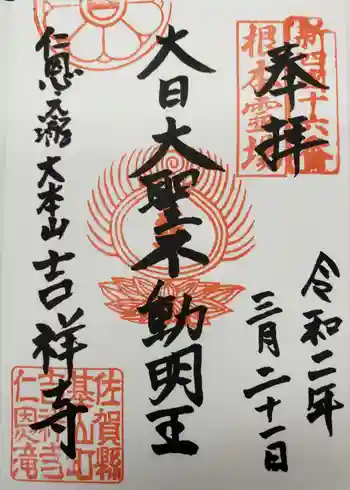 奉拝
新四国十六番
根本霊場
令和二年
三月二十一日
大日大聖不動明王
仁恩元瀧大本山吉祥寺
佐賀縣
基山町
吉祥寺
仁恩滝